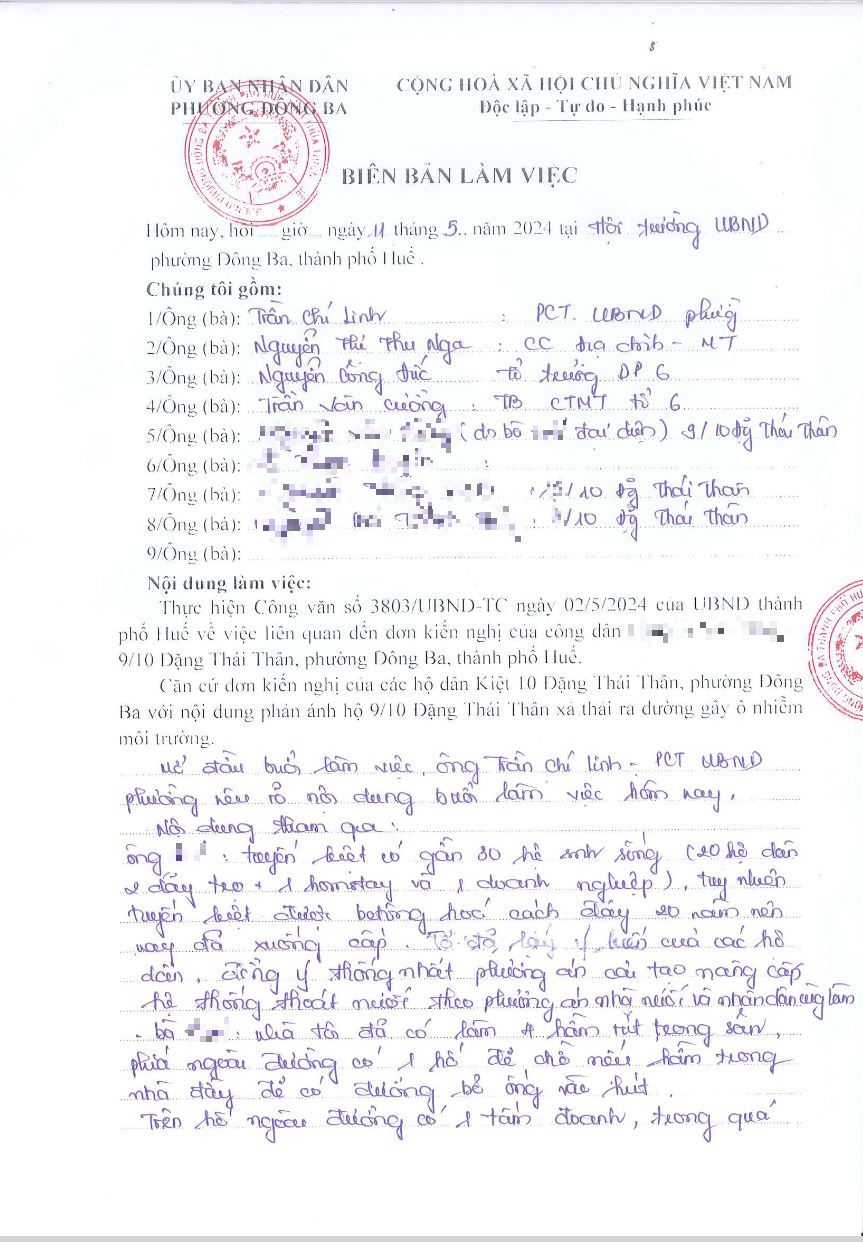 ỦY BAN NHÂN DÂN
PHƯỜNG ĐÔNG BA
CỘNG HOÀ XÃ HỘI CHỦ NGHĨA VIỆT NAM
Độc lập - Tự do - Hạnh phúc
BIÊN BẢN LÀM VIỆC
Hôm nay, hồi .... giờ.... ngày 11 tháng 5., năm 2024 tại Hội trường UBND
phường Đông Ba, thành phố Huế .
Chúng tôi gồm:
1/Ông (bà): Trần Chí Linh : PCT. UBND phường
2/Ông (bà): Nguyễn Thị Thu Nga : CC địa chính - MT
3/Ông (bà): Nguyễn Công Đức tổ trưởng DP 6
4/Ông (bà): Trần Văn Cường : TB CTMT tổ 6
5/Ông (bà): (do bà đại diện) 9/10 Đặng Thái Thân
6/Ông (bà): :
7/Ông (bà): /10 Đặng Thái Thân
8/Ông (bà): : /10 Đặng Thái Thân
9/Ông (bà):
Nội dung làm việc:
Thực hiện Công văn số 3803/UBND-TC ngày 02/5/2024 của UBND thành
phố Huế về việc liên quan đến đơn kiến nghị của công dân
9/10 Đặng Thái Thân, phường Đông Ba, thành phố Huế.
Căn cứ đơn kiến nghị của các hộ dân Kiệt 10 Đặng Thái Thân, phường Đông
Ba với nội dung phản ánh hộ 9/10 Đặng Thái Thân xả thải ra đường gây ô nhiễm
môi trường.
Mở đầu buổi làm việc, ông Trần Chí Linh - PCT UBND
phường nêu rõ nội dung buổi làm việc hôm nay.
Nội dung tham gia :
ông : tuyến kiệt có gần 30 hộ sinh sống (20 hộ dân
2 dãy trọ + 1 homstay và 1 doanh nghiệp), tuy nhiên
tuyến kiệt được bêtông hoá cách đây 20 năm nên
nay đã xuống cấp. Tổ đã lấy ý kiến của các hộ
dân, đồng ý thống nhất phương án cải tạo nâng cấp
hệ thống thoát nước theo phương án nhà nước và nhân dân cùng làm
- bà : nhà tôi đã có làm 4 hầm rút trong sân,
phía ngoài đường có 1 hố để chờ nếu hầm trong
nhà đầy để có đường bỏ ống vào hút.
Trên hố ngoài đường có 1 tấm doanh, trong quá